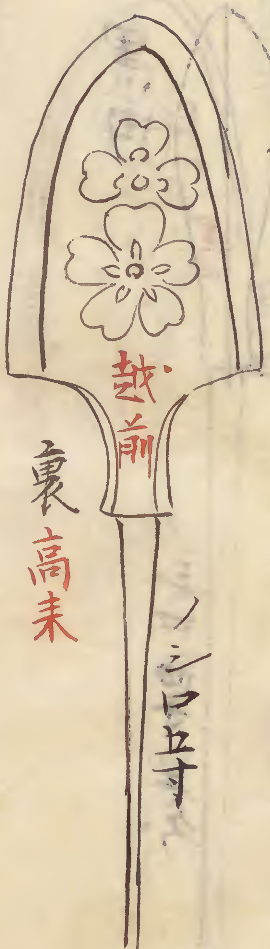 越前
裏
高耒
ノシロ五寸